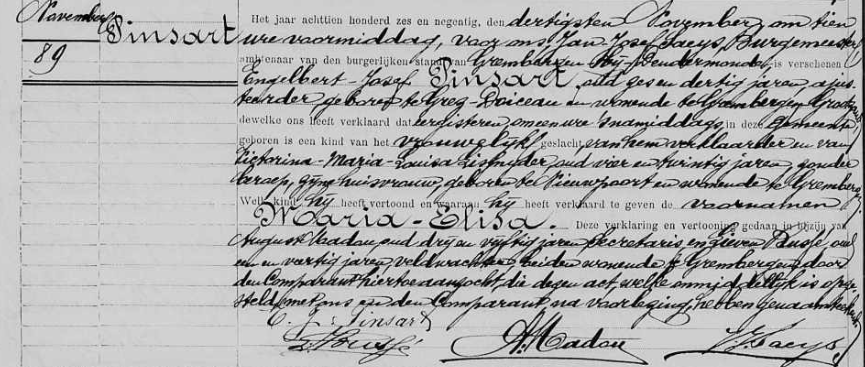 November
89
Pinsart
Het jaar achttien honderd zes en negentig, den dertigsten November, om tien
ure voormiddag, voor ons, Jan-Josef Saeys, Burgemeester
ambtenaar van den burgerlijken stand van Grembergen bij Dendermonde, is verschenen
Engelbert-Josef Pinsart, oud zes en dertig jaren, ajus-
teerder, geboren te Grez-Doiceau en wonende te Grembergen
dewelke ons heeft verklaard dat eergisteren, om een ure 's namiddags, in deze Gemeente
geboren is een kind van het vrouwelijk geslacht, van hem verklaarder en van
Victorina-Maria-Louisa oud vier en twintig jaren, zonder
beroep, zijne huisvrouw, geboren te Nieuwpoort en wonende te Grembergen
Welk kind hij heeft vertoond en waaraan hij heeft verklaard te geven de voornamen
Maria-Elisa. Deze verklaring en vertooning gedaan in bijzijn van
August Madou, oud drij en vijftig jaren, Secretaris, en Lieven oud
een en veertig jaren, veldwachter, beiden wonende te Grembergen, door
den Comparant hiertoe aanzocht, die dezen act welke onmiddellijk is opge-
steld, met ons en den Comparant, na voorlezing, hebben genaamteekend
E. J. Pinsart
A. Madou J. J. Saeys